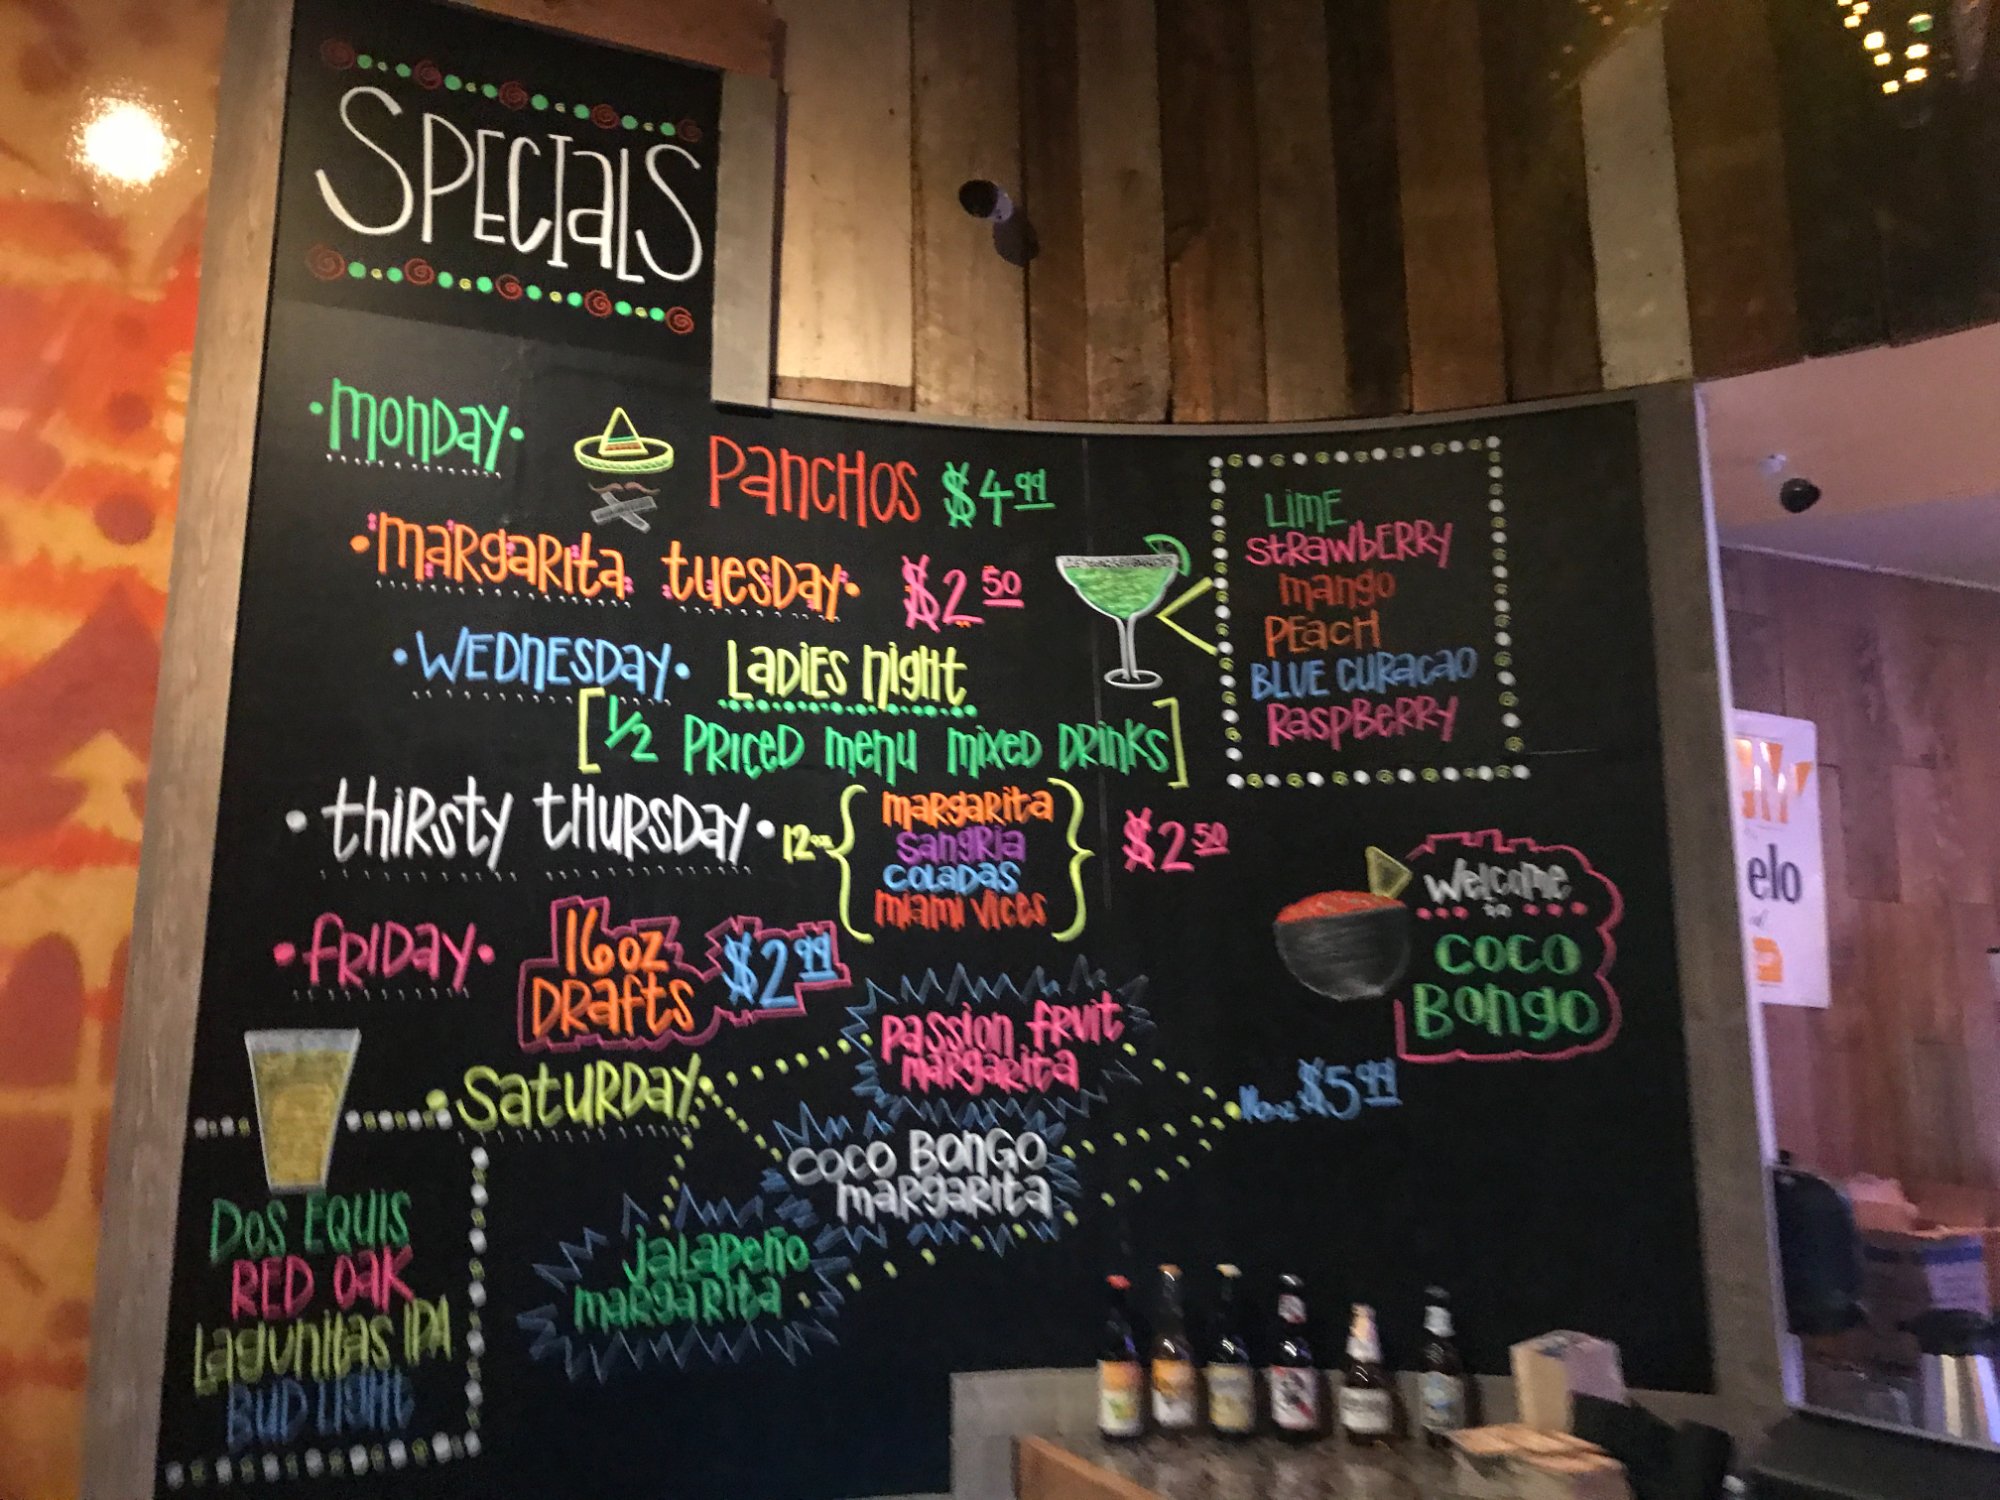 SPECIALS
MONDAY PANCHOS $4.99
MARGARITA TUESDAY $2.50
LIME
STRAWBERRY
MANGO
PEACH
BLUE CURACAO
RASPBERRY
WEDNESDAY LADIES NIGHT
[1/2 PRICED MENU MIXED DRINKS]
THIRSTY THURSDAY 12oz { MARGARITA
SANGRIA
COLADAS
MIAMI VICES } $2.50
FRIDAY 16 OZ
DRAFTS $2.99
WELCOME
TO
COCO
BONGO
SATURDAY
PASSION FRUIT
MARGARITA
COCO BONGO
MARGARITA
JALAPEÑO
MARGARITA
16oz $5.99
DOS EQUIS
RED OAK
LAGUNITAS IPA
BUD LIGHT
elo